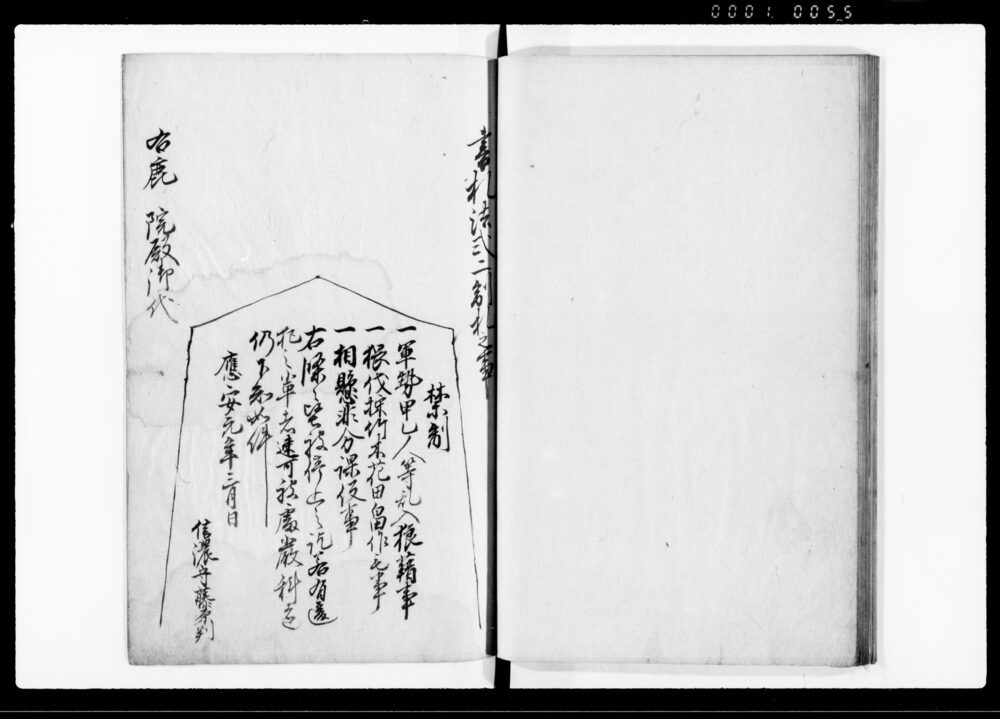 0001 0055
書札法式ニ制札之事
禁制
一軍勢甲乙人等乱入狼藉事
一猥伐採竹木花田畠作毛事
一相懸非分課役事
右條々堅被停止之訖若有違
犯之輩者速可被處厳科之
仍下知如件
應安元年三月日
信濃守藤原判
右鹿 院殿御代